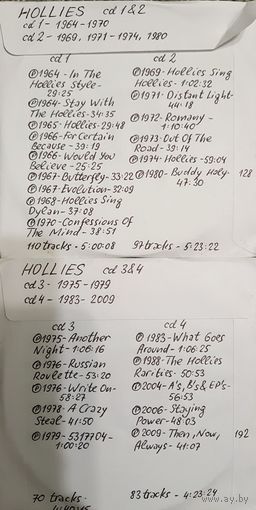 HOLLIES cd 1&2
cd 1 - 1964-1970
cd 2 - 1969, 1971-1974, 1980
cd 1
℗1964 - In The
Hollies Style -
29:25
℗1964 - Stay With
The Hollies - 34:35
℗1965 - Hollies - 29:48
℗1966 - For Certain
Because - 39:19
℗1966 - Would You
Believe - 25:25
℗1967 - Butterfly - 33:22
℗1967 - Evolution - 32:09
℗1968 - Hollies Sing
Dylan - 37:08
℗1970 - Confessions Of
The Mind - 38:51
110 tracks - 5:00:08
cd 2
℗1969 - Hollies Sing
Hollies - 1:02:32
℗1971 - Distant Light -
44:18
℗1972 - Romany -
1:10:40
℗1973 - Out Of The
Road - 39:14
℗1974 - Hollies - 59:04
℗1980 - Buddy Holy -
47:30
128
97 tracks - 5:23:22
HOLLIES cd 3&4
cd 3 - 1975-1979
cd 4 - 1983-2009
cd 3
℗1975 - Another
Night - 1:06:16
℗1976 - Russian
Roulette - 53:20
℗1976 - Write On -
58:27
℗1978 - A Crazy
Steal - 41:50
℗1979 - 5317704 -
1:00:20
70 tracks -
cd 4
℗ 1983 - What Goes
Around - 1:06:25
℗ 1988 - The Hollies
Rarities - 50:53
℗ 2004 - A's, B's & EP's -
56:53
℗ 2006 - Staying
Power - 48:03
℗ 2009 - Then, Now,
Always - 41:07
192
83 tracks - 4:23:24
www.ay.by